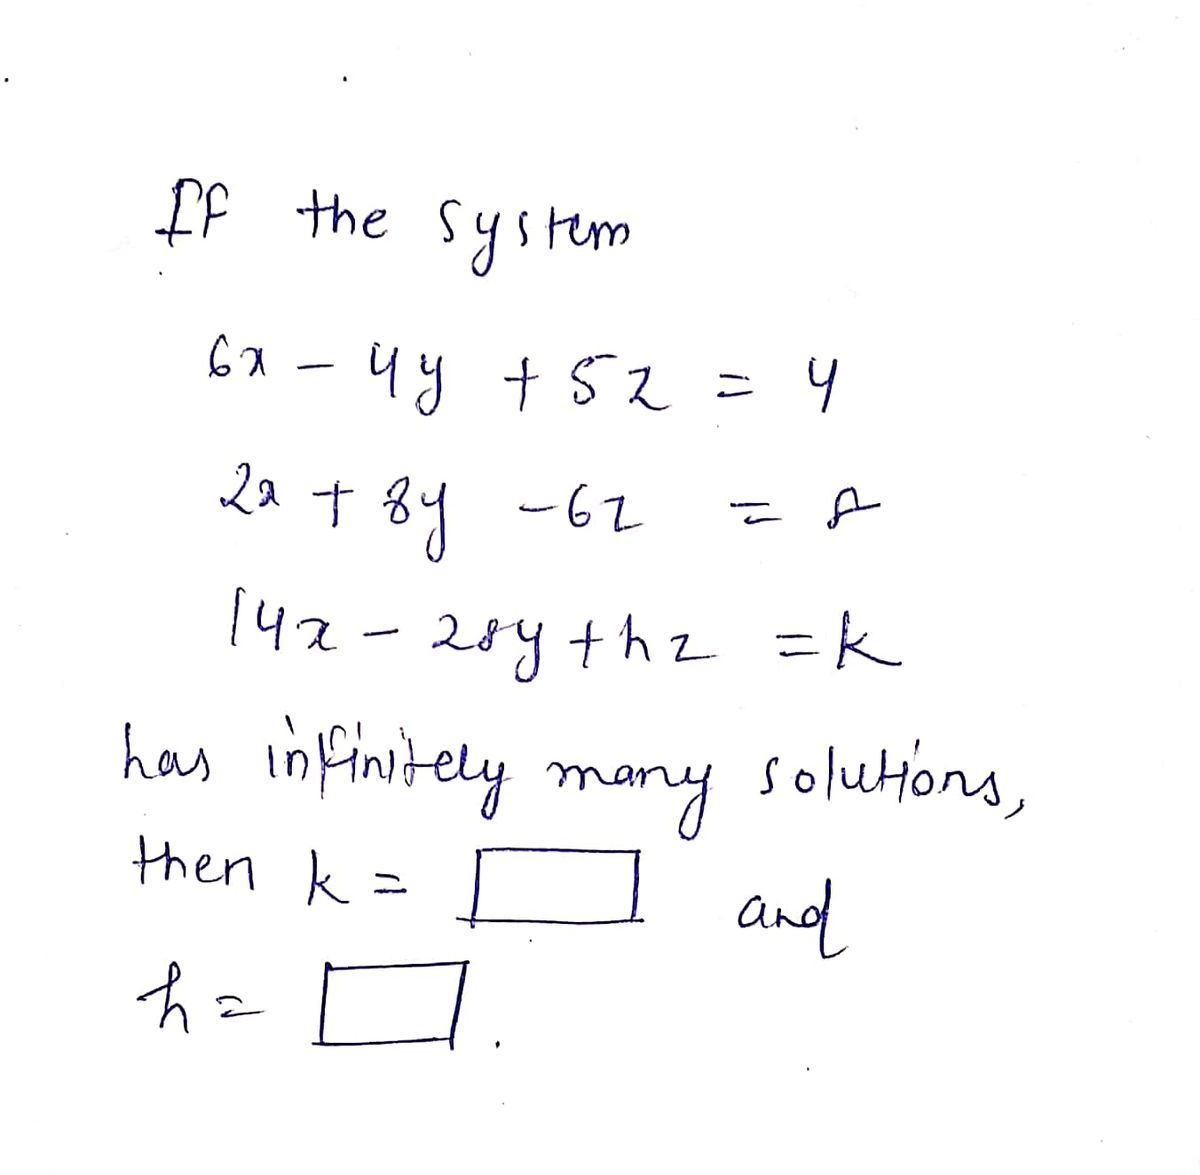 If the system
6x - 4y + 5z = 4
2x + 8y - 6z =
14x - 28y + hz = k
has infinitely many solutions,
then k = and
h = .